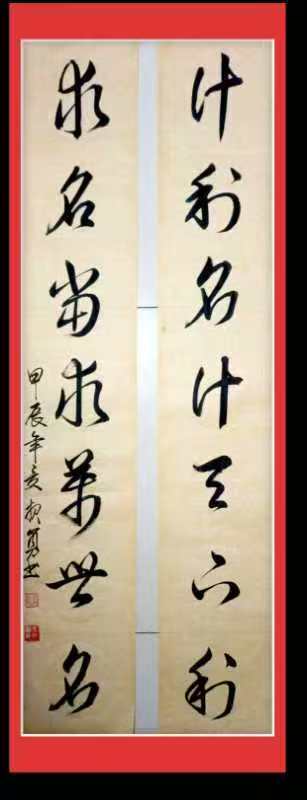 计利名计天下利
求名當求萬世名
甲辰年